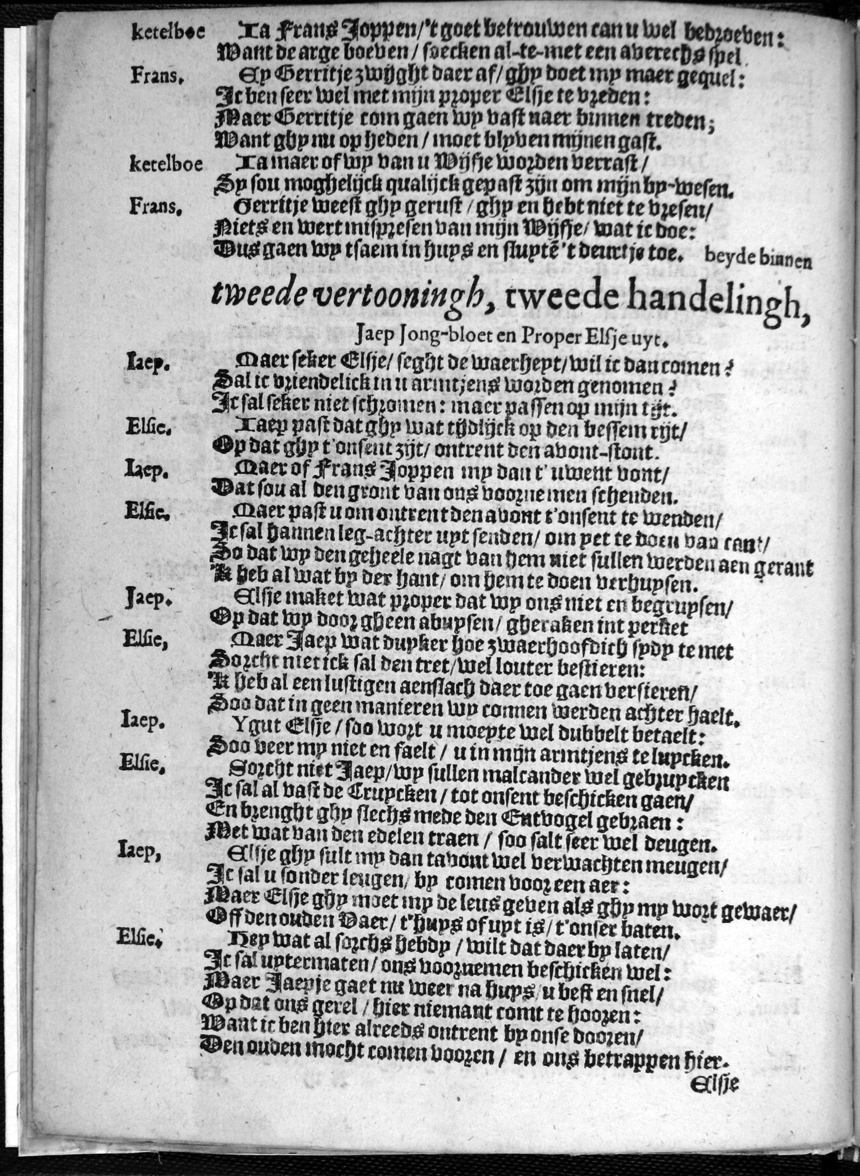 ketelboe Ia Frans Joppen/'t goet betrouwen can u wel bedroeven:
Want de arge boeven/soecken al-te-met een averechs spel.
Frans. Ey Gerritje zwijght daer af/ghy doet my maer gequel:
Ic ben seer wel met mijn proper Elsje te vreden:
Maer Gerritje com gaen wy vast naer binnen treden;
Want ghy nu op heden/moet blyven mijnen gast.
ketelboe Ia maer of wy van u Wijfje worden verrast/
Sy sou moghelijck qualijck gepast zijn om mijn by-wesen.
Frans. Gerritje weest ghy gerust/ghy en hebt niet te vresen/
Niets en wert mispresen van mijn Wijfje/wat ic doe:
Dus gaen wy tsaem in huys en sluytē 't deurtje toe. beyde binnen
tweede vertooningh, tweede handelingh,
Jaep Jong-bloet en Proper Elsje uyt.
Iaep. Maer seker Elsje/seght de waerheyt/wil ic dan comen?
Sal ic vriendelick in u armtjens worden genomen?
Ic sal seker niet schromen: maer passen op mijn tijt.
Elsie. Iaep past dat ghy wat tijdlijck op den bessem rijt/
Op dat ghy t'onsent zijt/ontrent den avont-stont.
Iaep. Maer of Frans Joppen my dan t'uwent vont/
Dat sou al den gront van ons voornemen schenden.
Elsie. Maer past u om ontrent den avont t'onsent te wenden/
Ic sal hannen leg-achter uyt senden/om yet te doen van cant/
So dat wy den geheele nagt van hem niet sullen werden aen gerant
'k heb al wat by der hant/om hem te doen verhuysen.
Jaep. Elsje maket wat proper dat wy ons niet en begruysen/
Op dat wy door gheen abuysen/gheraken int perket
Elsie, Maer Jaep wat duyker hoe zwaerhoofdich sydy te met
Sorcht niet ick sal den tret/wel louter bestieren:
'k heb al een lustigen aenslach daer toe gaen versieren/
Soo dat in geen manieren wy connen werden achter haelt.
Iaep. Ygut Elsje/soo wort u moeyte wel dubbelt betaelt:
Soo veer my niet en faelt/u in mijn armtjens te luycken.
Elsie, Sorcht niet Jaep/wy sullen malcander wel gebruycken
Ic sal al vast de Cruycken/tot onsent beschicken gaen/
En brenght ghy slechs mede den Entvogel gebraen:
Met wat van den edelen traen/soo salt seer wel deugen.
Iaep, Elsje ghy sult my dan tavont wel verwachten meugen/
Ic sal u sonder leugen/by comen voor een aer:
Maer Elsje ghy moet my de leus geven als ghy my wort gewaer/
Off den ouden Vaer/t'huys of uyt is/t'onser baten.
Elsie. Hey wat al sorchs hebdy/wilt dat daer by laten/
Ic sal uytermaten/ons voornemen beschicken wel:
Maer Jaepje gaet nu weer na huys/u best en snel/
Op dat ons gerel/hier niemant comt te hooren:
Want ic ben hier alreeds ontrent by onse dooren/
Den ouden mocht comen vooren/en ons betrappen hier.
Elsje